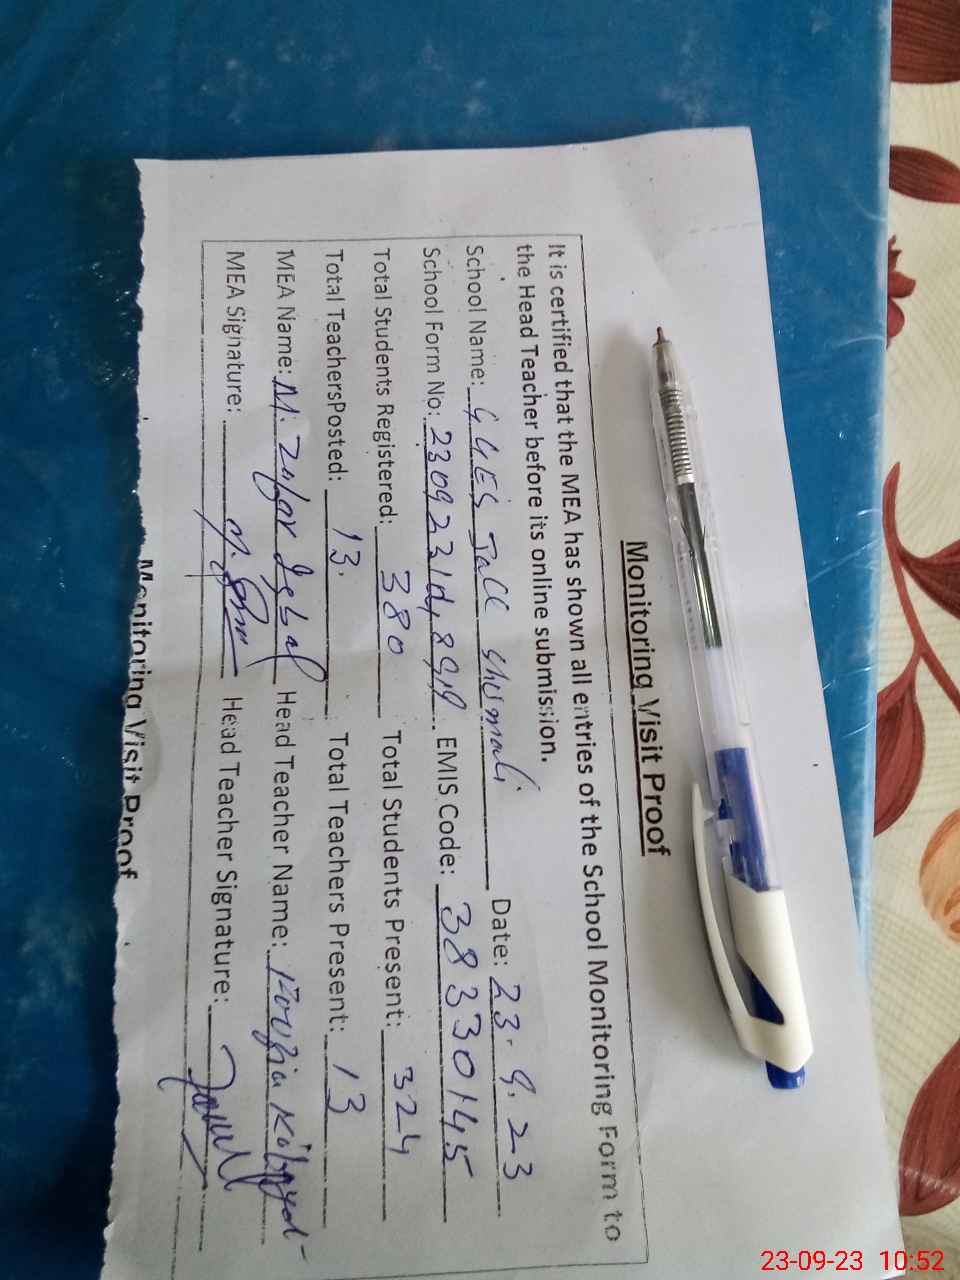 Monitoring Visit Proof
It is certified that the MEA has shown all entries of the School Monitoring Form to
the Head Teacher before its online submission.
School Name: GGES Jall Shumali Date: 23.9.23
School Form No: EMIS Code: 38330145
Total Students Registered: 380 Total Students Present: 324
Total TeachersPosted: 13. Total Teachers Present: 13
MEA Name: M. Zafar Iqbal Head Teacher Name: Fouzia
MEA Signature: Head Teacher Signature:
Monitoring Visit Proof
23-09-23 10:52